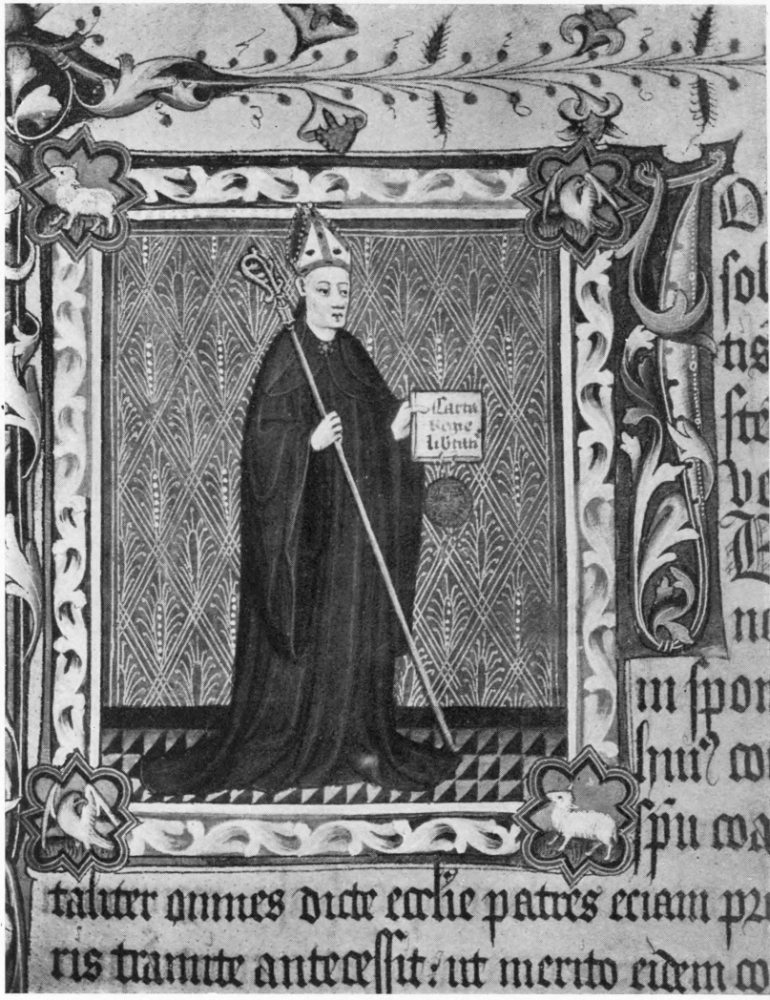 Carta
sol
tis
ste
ve
no
in spon
huiꝰ con
spu coa
taliter omnes dicte ecclie patres eciam pri
ris tramite antecessit: ut merito eidem co